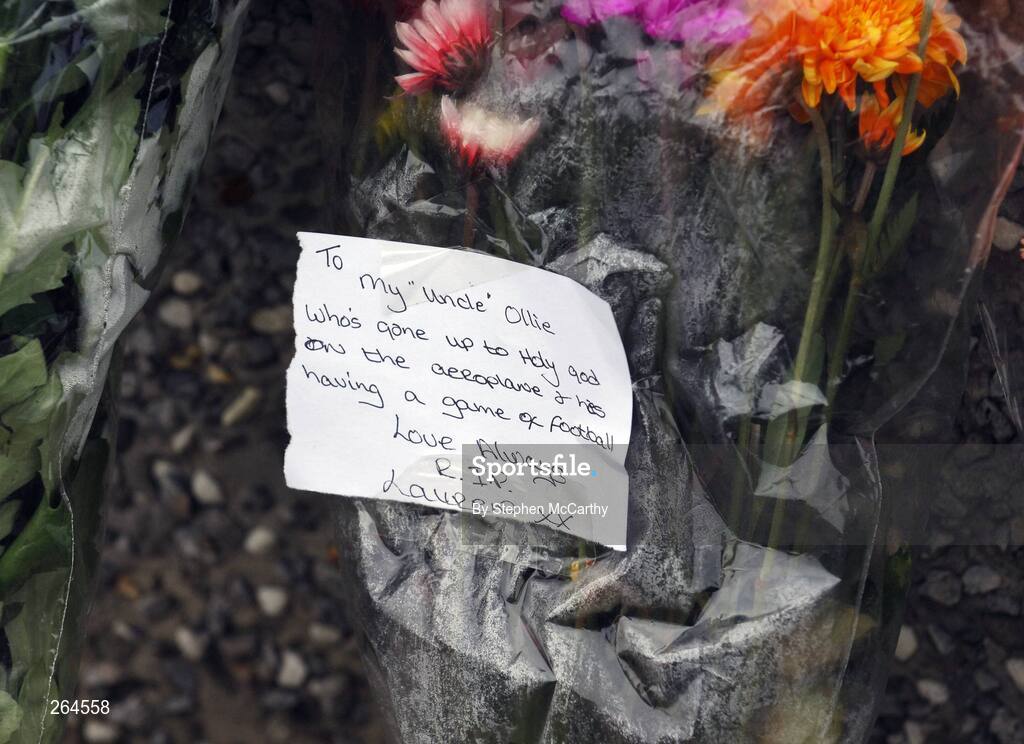 To
My "Uncle" Ollie
Who's gone up to Holy god
on the aeroplane & his
having a game of football
Love Always
R.I.P.
xx
Sportsfile.
By Stephen McCarthy
264558